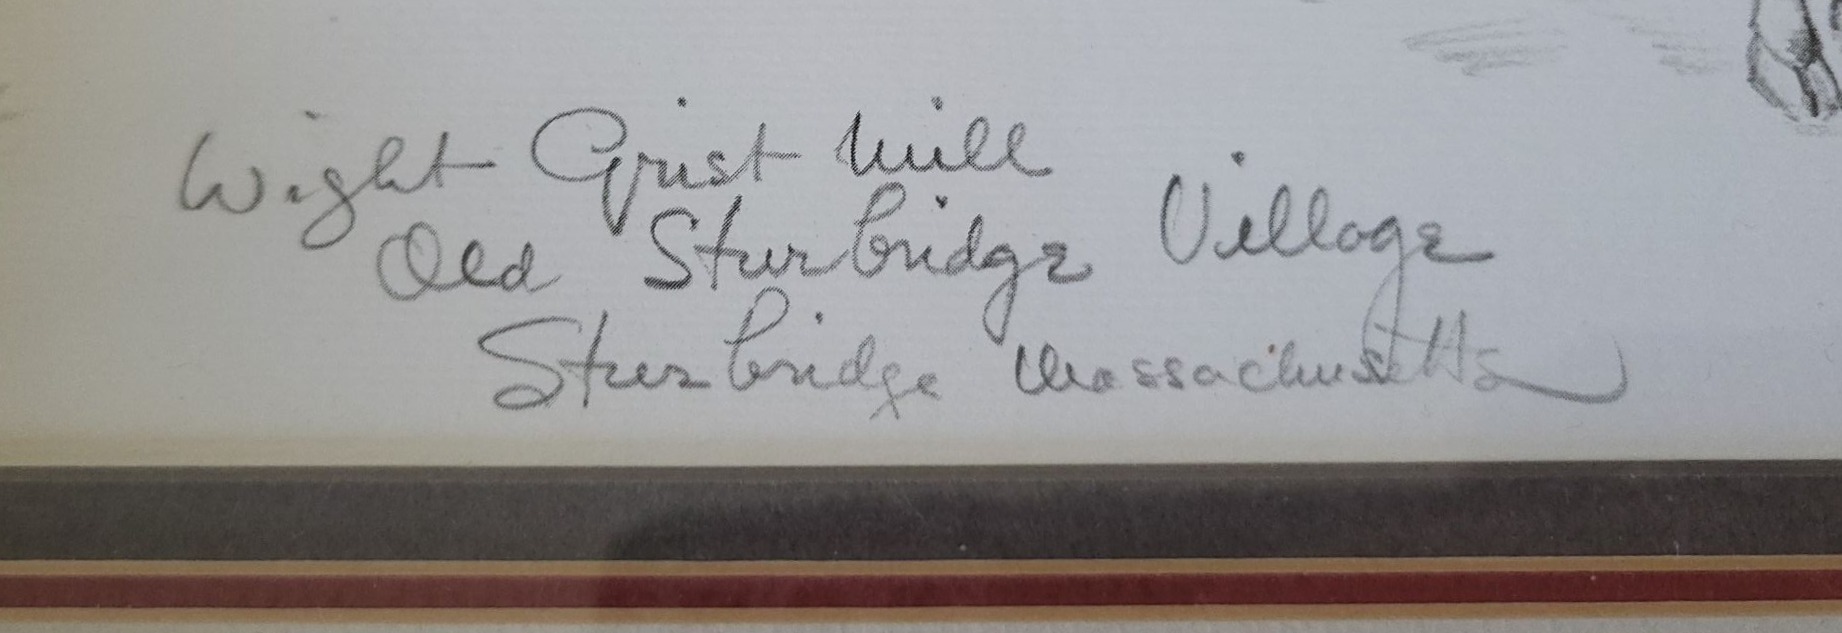 Wight Grist Mill
Old Sturbridge Village
Sturbridge Massachusetts